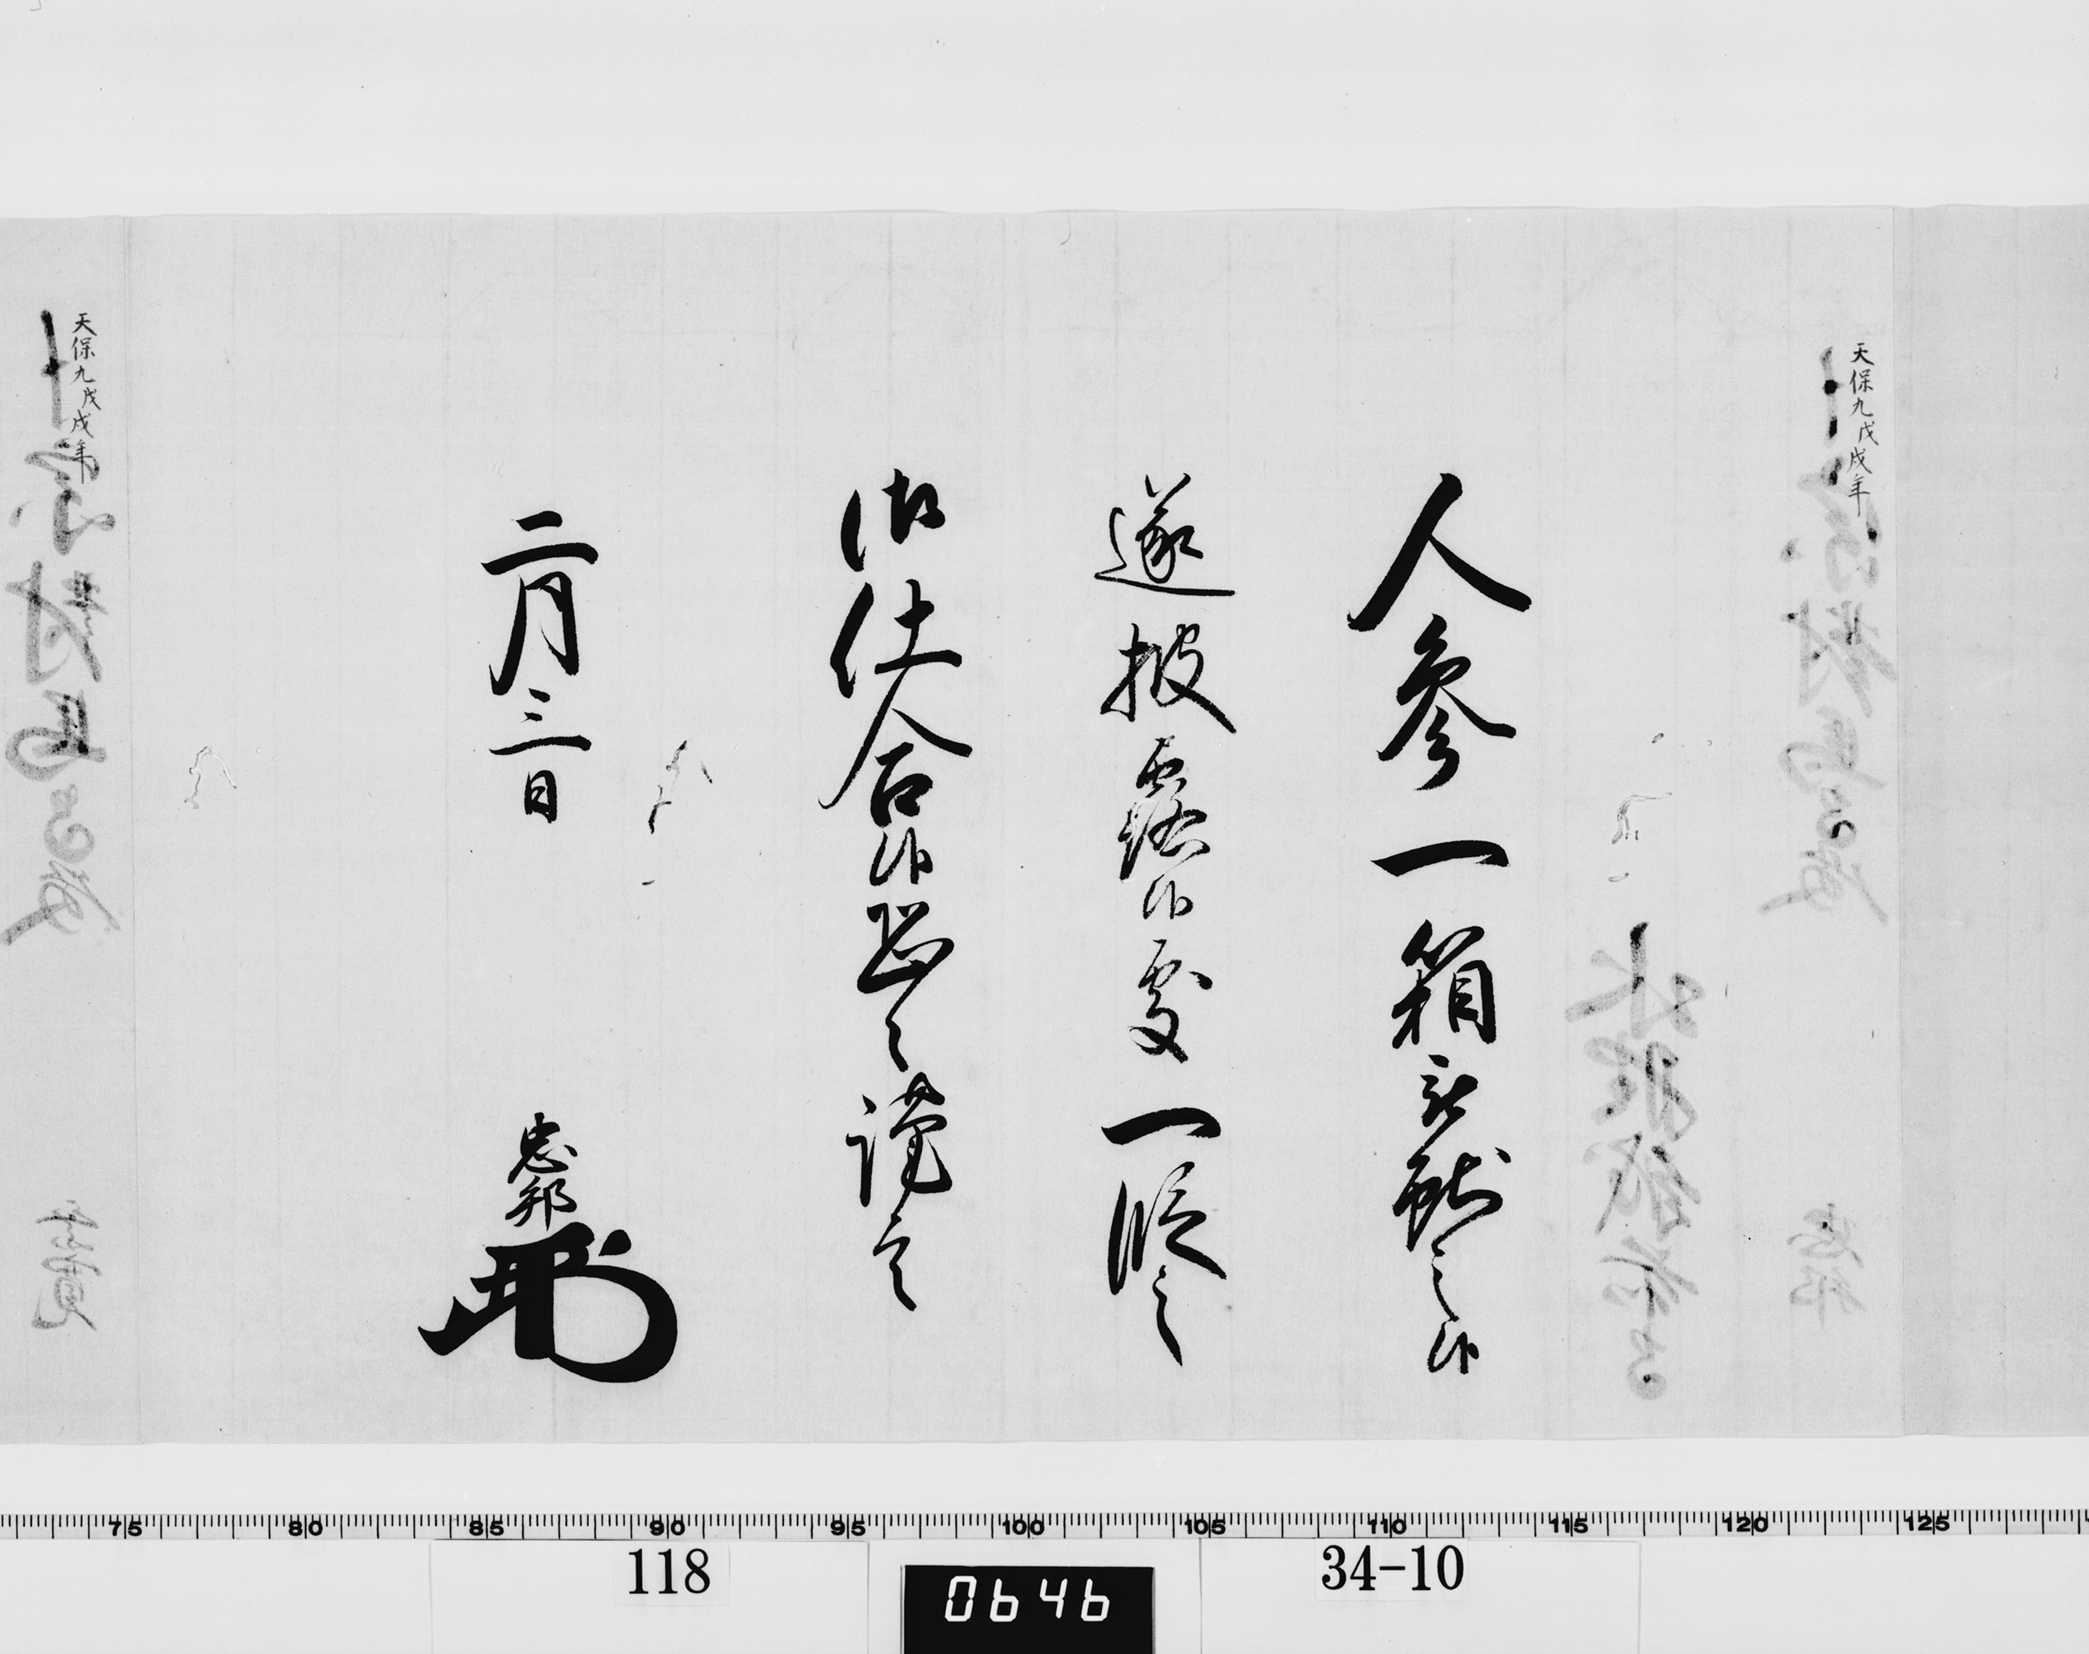 天保九戊戌年
人参一箱被献之候
遂披露候処一段之
御仕合候恐々謹言
二月三日
忠邦
天保九戊戌年
75 80 85 90 95 100 105 110 115 120 125
118
0646
34-10